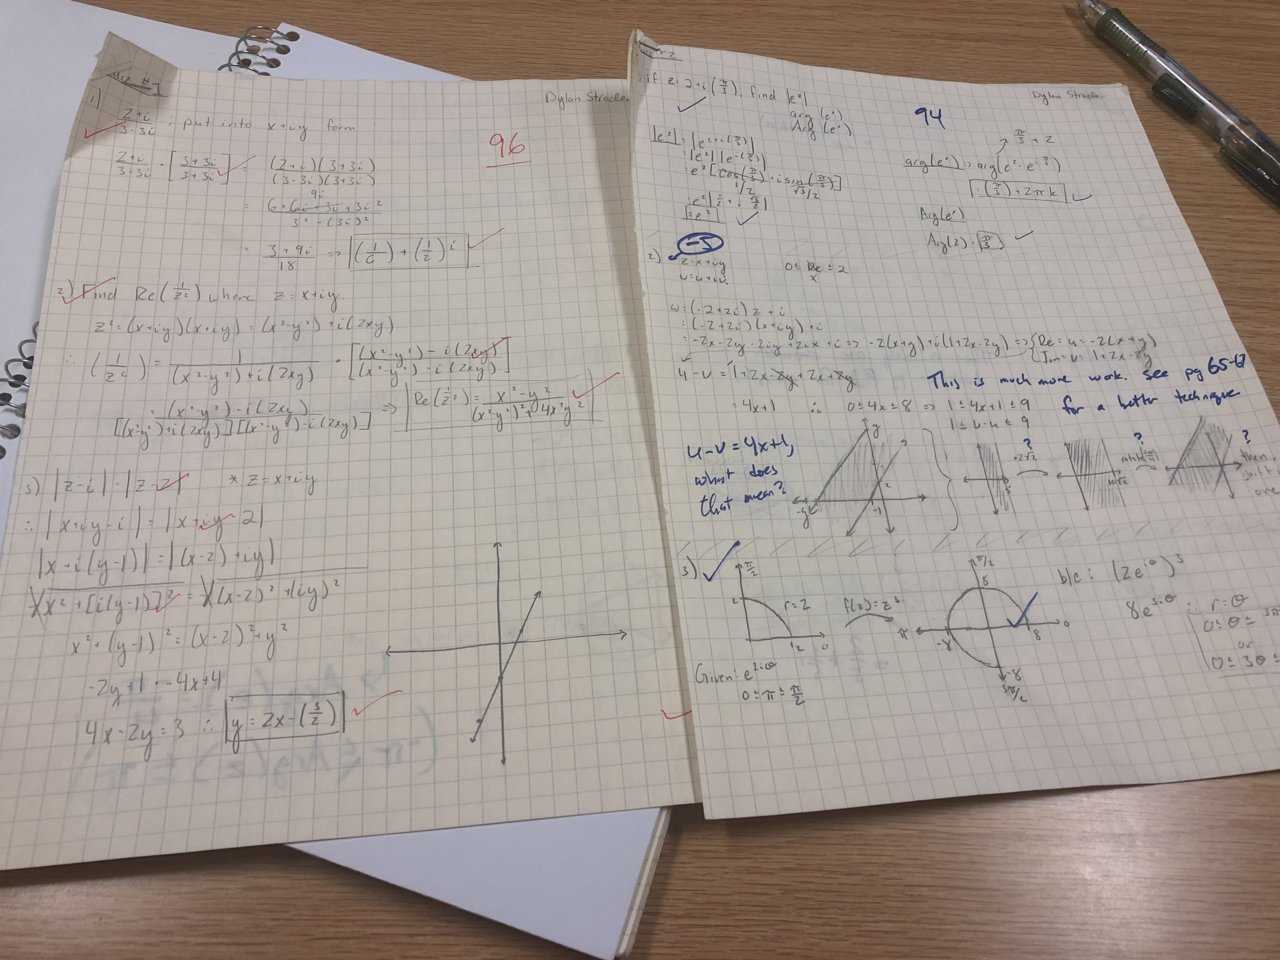 Dylan
96
1)
2+i
3-3i
: put into x+iy form
2+i
3-3i
· [3+3i
3+3i]
= (2+i)(3+3i)
(3-3i)(3+3i)
9i
= 6+6i+3i+3i²
3²-(3i)²
= 3+9i
18
=> (1/6) + (1/2) i
2) Find Re(1/z²) where z=x+iy
z²=(x+iy)(x+iy)=(x²-y²)+i(2xy)
∴ (1/z²)= 1
(x²-y²)+i(2xy)
· [(x²-y²)-i(2xy)
(x²-y²)-i(2xy)]
= (x²-y²)-i(2xy)
[(x²-y²)+i(2xy)][(x²-y²)-i(2xy)]
=> Re(1/z²)= x²-y²
(x²-y²)²+4x²y²
3) |z-i|=|z-2| * z=x+iy
∴ |x+iy-i|=|x+iy-2|
|x+i(y-1)|=|(x-2)+iy|
√x²+[i(y-1)]² = √(x-2)²+(iy)²
x²+(y-1)²=(x-2)²+y²
-2y+1=-4x+4
4x-2y=3 ∴ y=2x-(3/2)
Dylan
94
if z=2+i(π/3), find |e^z|
arg(e^z)
Arg(e^z)
|e^z|=|e^2+i(π/3)|
=|e²||e^i(π/3)|
=e²[cos(π/3)+i sin(π/3)]
1/2 √3/2
=e²
π/3+2
arg(e^z)=>arg(e²·e^iπ/3)
=(π/3)+2πk
Arg(e^z)
Arg(z)=π/3
-5
2) z=x+iy 0≤Re≤2
w=u+iv x
w=(-2+2i)z+i
=(-2+2i)(x+iy)+i
=-2x-2y-2iy+2ix+i=>-2(x+y)+i(1+2x-2y)=>{Re=u=-2(x+y)
Im=v=1+2x-2y
=4x+1 ∴ 0≤4x≤8 => 1≤4x+1≤9
This is much more work. See pg 65-67
for a better technique
u-v=4x+1,
what does
that mean?
? ? ?
3)
π/2
2
r=2
2 0
f(z)=z³
π/2
8
π -8 8 0
-8
3π/2
b/c: (2e^iθ)³
8e^3iθ
Given: e^2iθ
0≤π≤π/2
r=θ
or